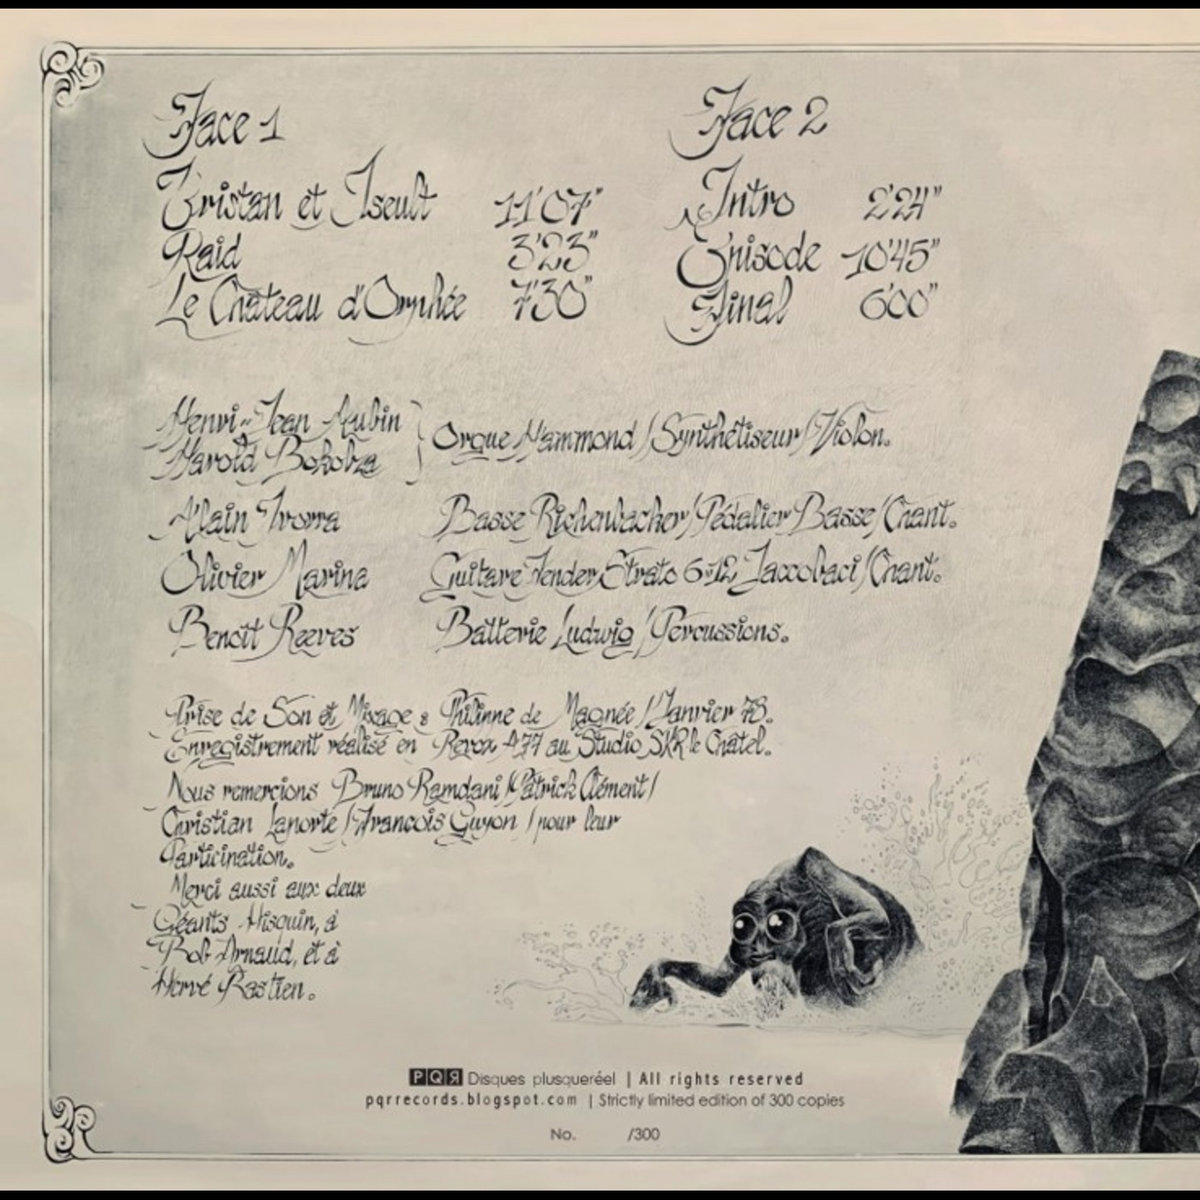 Face 1
Tristan et Iseult 11'07"
Raid 3'23"
Le Château d'Orphée 7'30"
Face 2
Intro 2'24"
Episode 10'45"
Final 6'00"
Henri-Jean Aubin
Harold Bokobza
Orgue Hammond / Synthétiseur / Violon.
Alain Ivorra Basse Richenbacker / Pédalier Basse / Chant.
Olivier Marina Guitare Fender Strato 6-12 Jaccobaci / Chant.
Benoît Reeves Batterie Ludwig / Percussions.
Prise de Son et Mixage : Philippe de Magnée / Janvier 78.
Enregistrement réalisé en Revox A77 au Studio SKR le Châtel.
Nous remercions Bruno Ramdani / Patrick Clément /
Christian Laporte / François Guyon / pour leur
Participation.
Merci aussi aux deux
Géants Hisquin, à
Bob Arnaud, et à
Hervé Bastien.
PQR Disques plusqueréel | All rights reserved
pqrrecords.blogspot.com | Strictly limited edition of 300 copies
No. /300